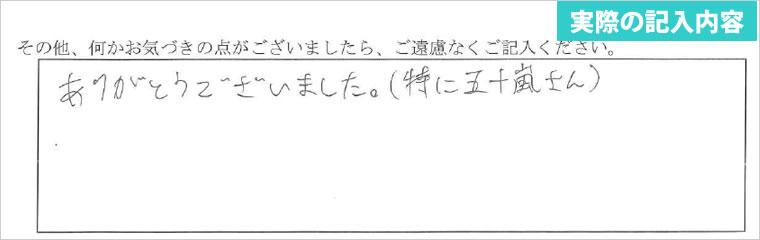 実際の記入内容
その他、何かお気づきの点がございましたら、ご遠慮なくご記入ください。
ありがとうございました。(特に五十嵐さん)